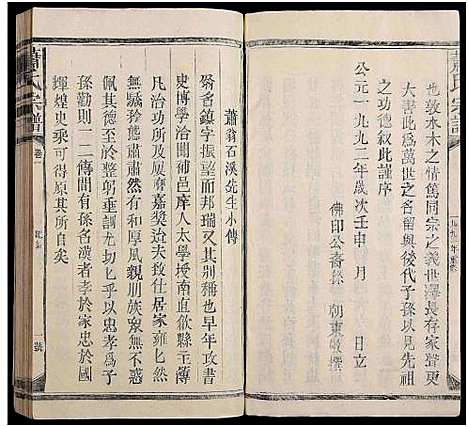 蕭氏宗譜
一九九二年重修
也敦水木之情篤同宗之義世澤長存家聲更
大書此為萬世之名留與後代子孫以見先祖
之功德敘此謹序
公元一九九二年歲次壬申月 日立
佛印公裔孫 朝東敬撰
蕭翁石溪先生小傳
翁名鎮字振望而邦瑞又其別稱也早年攻書
史博學洽聞補邑庠入太學授南直欽縣主簿
凡治功及展糜嘉獎迨夫致仕居家雍匕然
無驕矜態肅肅然有古風凡親朋族眾無不感
佩其德至於整躬垂訓尤切匕乎以忠孝為子
孫勸則一二傳間有孫名漢者孝於家忠於國
輝煌史乘可得原其所自矣
蕭氏宗譜
卷
一號